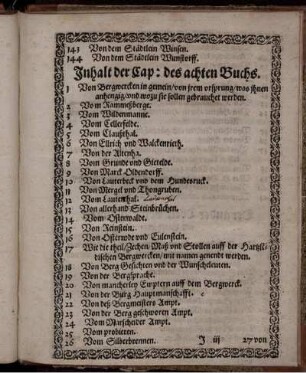 143 Von dem Städtlein Winsen.
144 Von dem Städtlein Wunstorff.
Inhalt der Cap: des achten Buchs.
1 Von Bergwercken in gemein/von jrem vrsprung/was jhnen
anhengig/vnd wozu sie sollen gebrauchet werden.
2 Vom Rammesberge.
3 Vom Wildenmanne.
4 Vom Cellerfelde.
5 Vom Claußthal.
6 Von Ellrich vnd Walckenrieth.
7 Von der Altenha.
8 Vom Grunde vnd Gittelde.
9 Von Marck Oldendorff.
10 Von Lauterbeck vnd dem Hundesruck.
11 Von Mergel vnd Thongruben.
12 Vom Lautenthal.
13 Von allerhand Steinbrüchen.
14 Vom Osterwalde.
15 Von Reinstein.
16 Von Osterode vnd Eulenstein.
17 Wie die theil/Zechen Maß vnd Stollen auff der Hartz-
dischen Bergwercken/mit namen genent werden.
18 Von Berg Gesichten vnd der Wünschelruten.
19 Von der Bergspracht.
20 Von mancherley Emptern auff dem Bergwerck.
21 Von der Burg Hauptmanschafft.
22 Von deß Bergmeisters Ampt.
23 Von der Berg geschworen Ampt.
24 Vom Marscheider Ampt.
25 Vom probieren.
26 Vom Silberbrennen. J iij 27 von